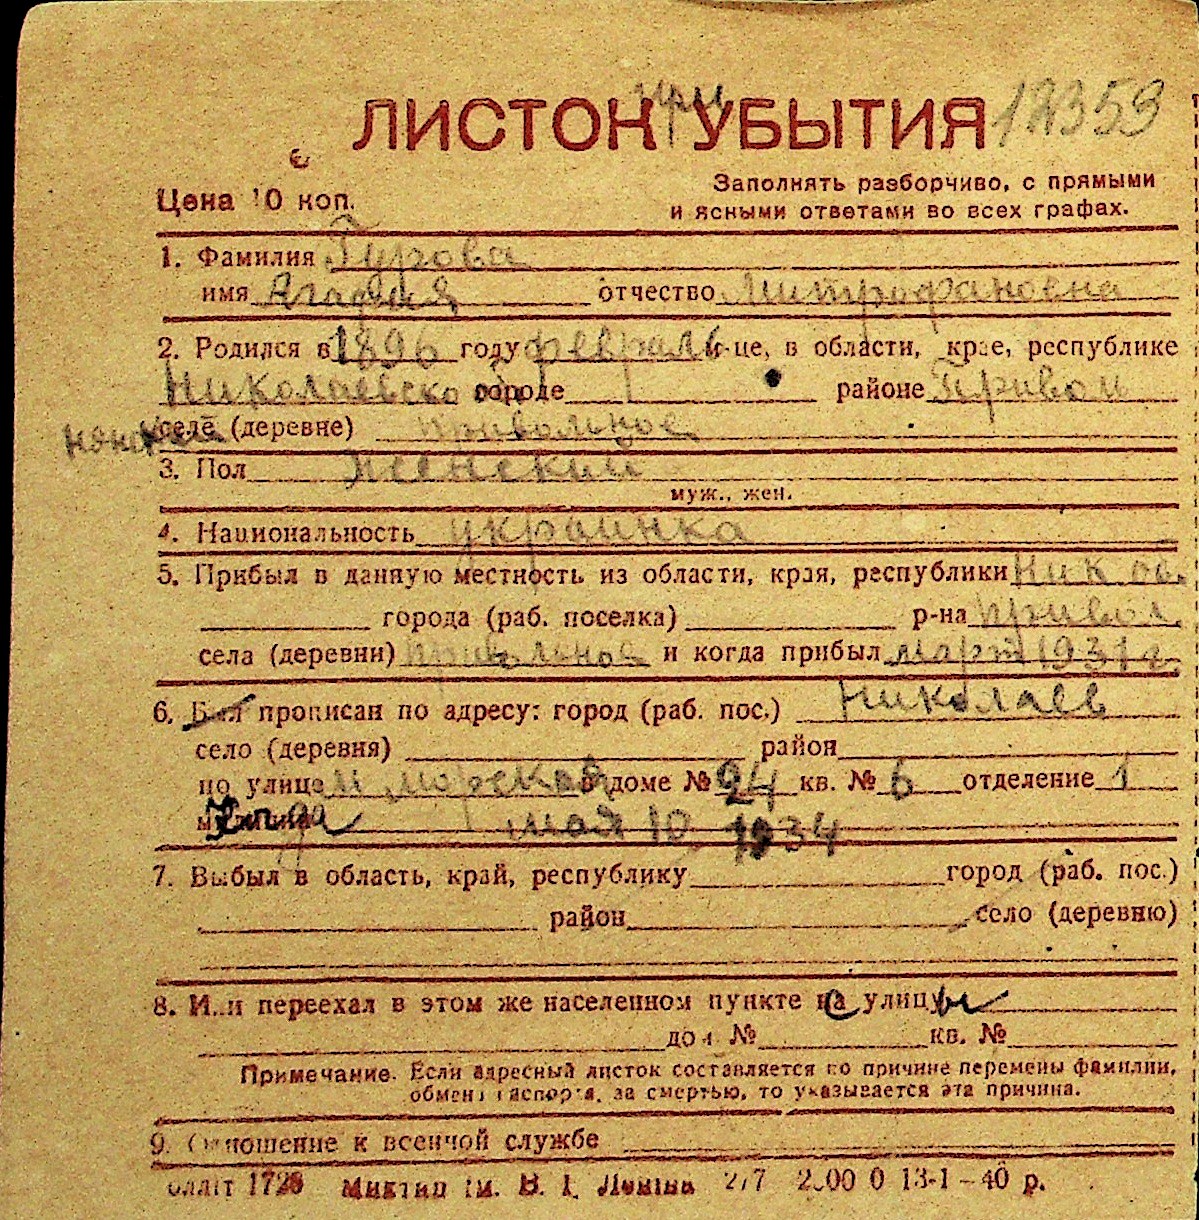 ЛИСТОК при УБЫТИЯ 12359
Цена 10 коп.
Заполнять разборчиво, с прямыми
и ясными ответами во всех графах.
1. Фамилия Гурова
имя Агафия отчество Митрофановна
2. Родился в 1896 году февраль м-це, в области, крае, республике
Николаевской городе районе Привол
селе (деревне) Привольное
3. Пол Женский
муж., жен.
4. Национальность украинка
5. Прибыл в данную местность из области, края, республики Никол.
города (раб. поселка) р-на привол
села (деревни) Привольное и когда прибыл март 1931 г.
6. Был прописан по адресу: город (раб. пос.) Николаев
село (деревня) район
по улице М морская в доме № 24 кв. № 6 отделение 1
мая 10 1934
7. Выбыл в область, край, республику город (раб. пос.)
район село (деревню)
8. Или переехал в этом же населенном пункте на с улицу ы
дом № кв. №
Примечание. Если адресный листок составляется по причине перемены фамилии,
обмена паспорта, за смертью, то указывается эта причина.
9. Отношение к военной службе
1728 В. І. Леніна 13-1-40 р.